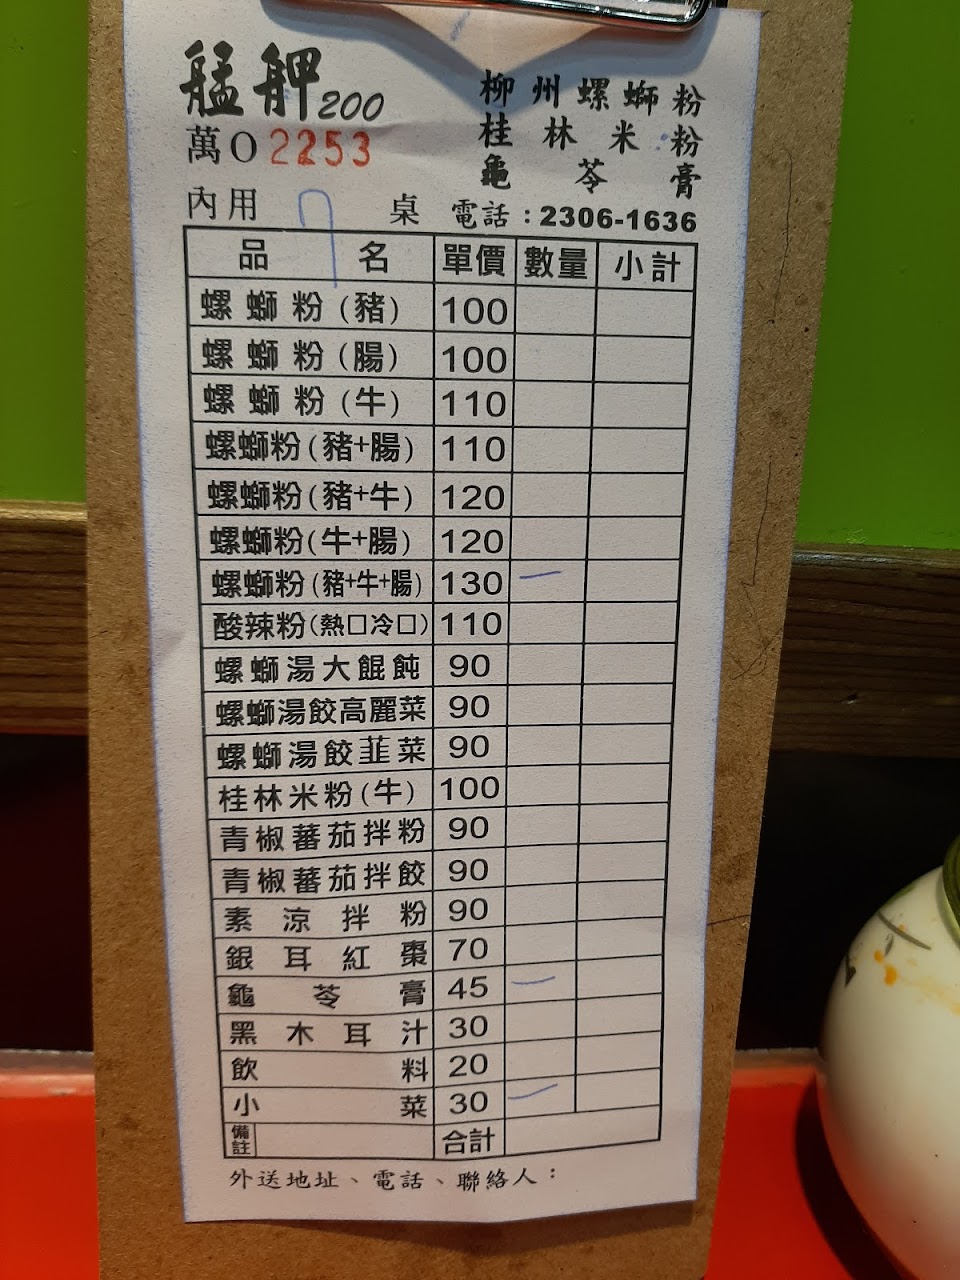 艋舺200
柳州螺螄粉
桂林米粉
龜苓膏
萬O 2253
內用 7 桌 電話：2306-1636
品名 單價 數量 小計
螺螄粉(豬) 100
螺螄粉(腸) 100
螺螄粉(牛) 110
螺螄粉(豬+腸) 110
螺螄粉(豬+牛) 120
螺螄粉(牛+腸) 120
螺螄粉(豬+牛+腸) 130 一
酸辣粉(熱□冷□) 110
螺螄湯大餛飩 90
螺螄湯餃高麗菜 90
螺螄湯餃韮菜 90
桂林米粉(牛) 100
青椒蕃茄拌粉 90
青椒蕃茄拌餃 90
素涼拌粉 90
銀耳紅棗 70
龜苓膏 45 一
黑木耳汁 30
飲料 20
小菜 30 一
備註 合計
外送地址、電話、聯絡人：